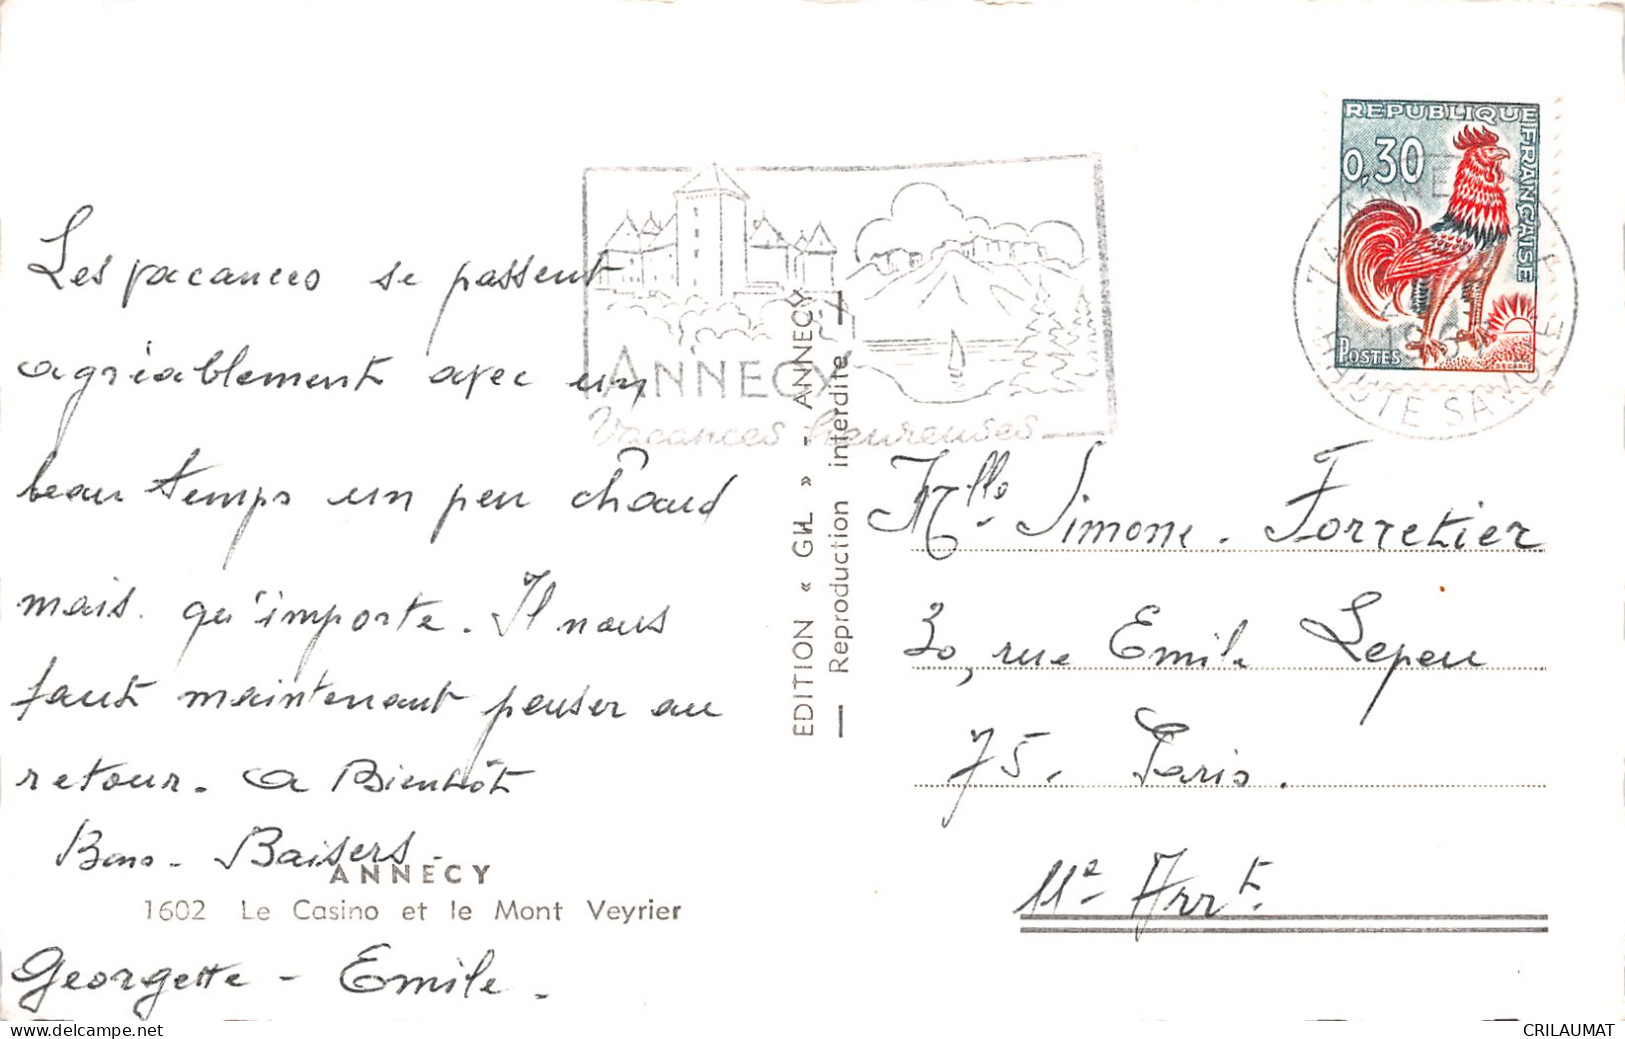 Les vacances se passent
agréablement avec un
beau temps un peu chaud
mais. qu'importe. Il nous
faut maintenant penser au
retour. a Bientôt
Bons. Baisers.
ANNECY
1602 Le Casino et le Mont Veyrier
Georgette - Emile.
ANNECY
Vacances heureuses
EDITION « GIL » - ANNECY
— Reproduction interdite —
REPUBLIQUE FRANÇAISE
0,30
POSTES
DECARIS
HAUTE SAVOIE
Mlle Simone. Forretier
30, rue Emile Lepeu
75. Paris.
11e Arrt.
www.delcampe.net
CRILAUMAT